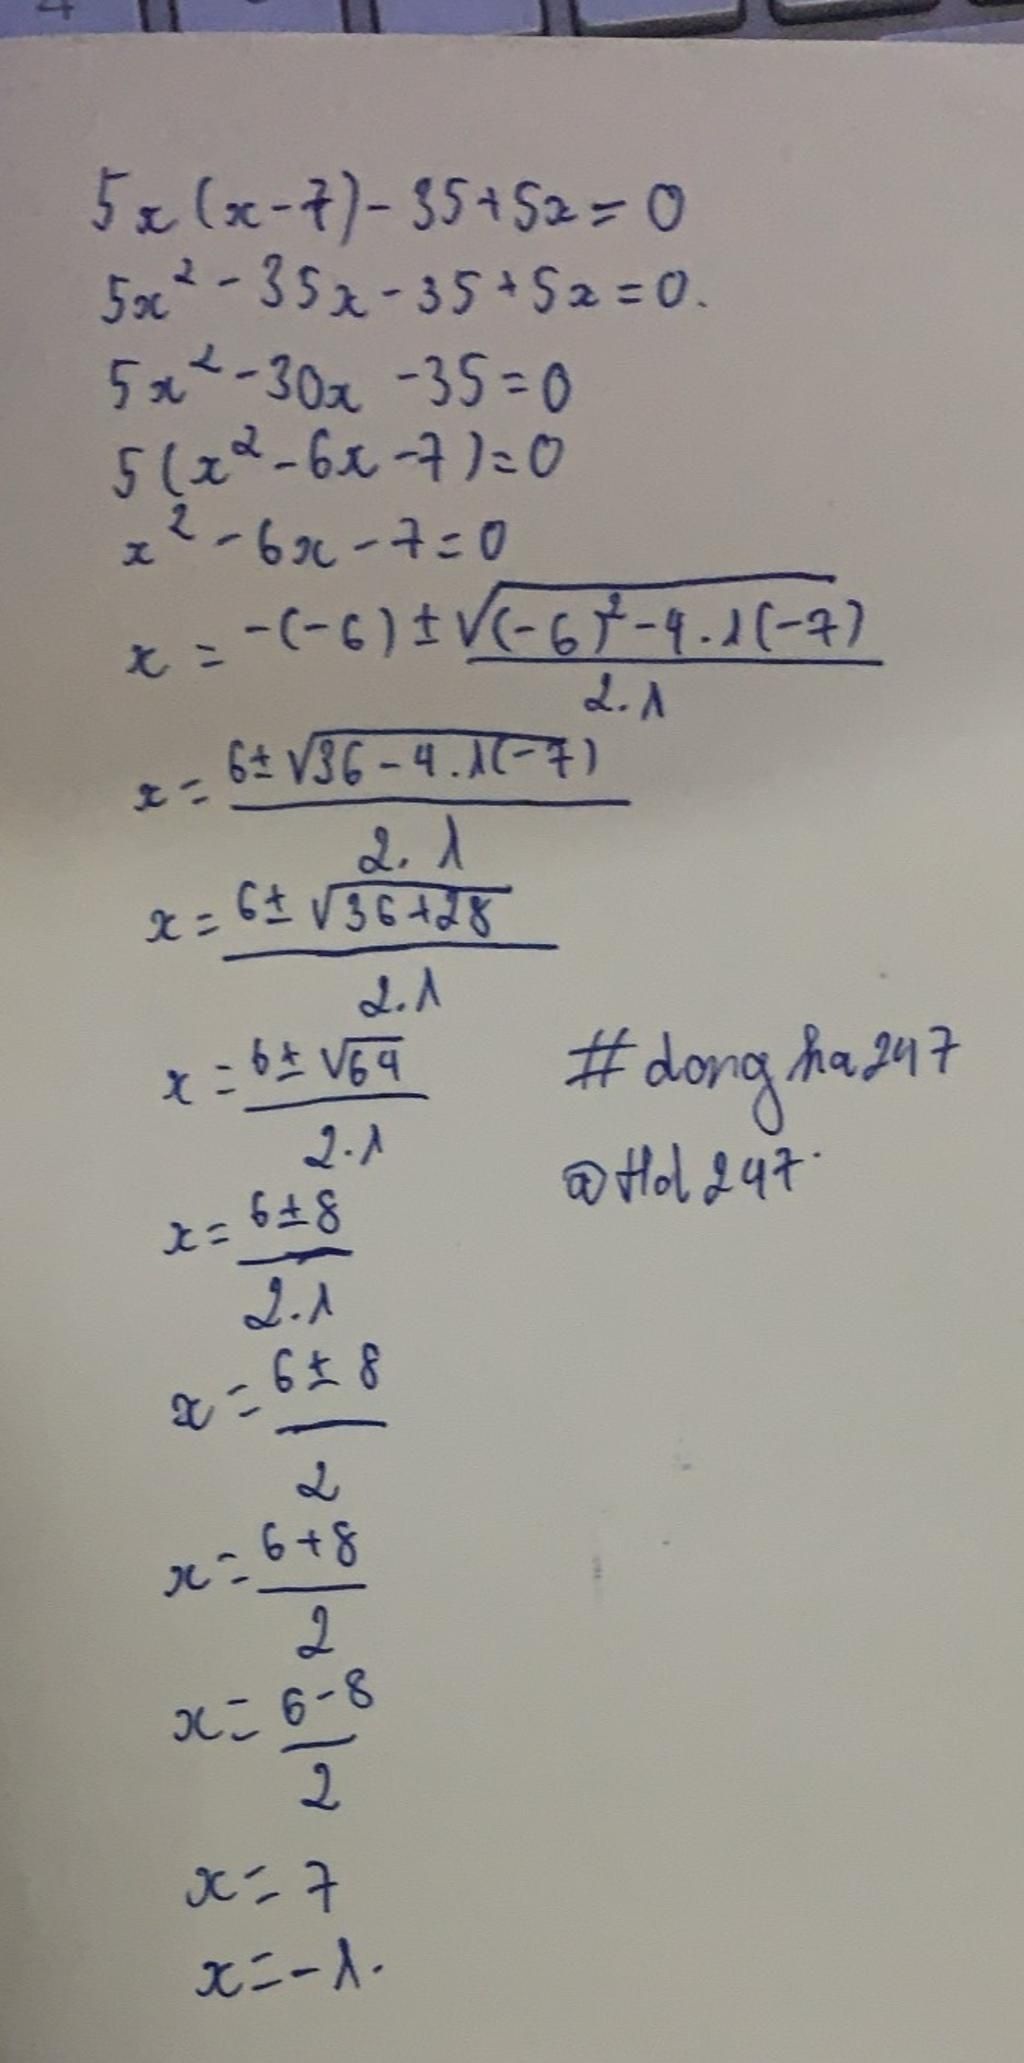 5x(x-7)-35+5x=0
5x²-35x-35+5x=0.
5x²-30x-35=0
5(x²-6x-7)=0
x²-6x-7=0
x = -(-6)±√(-6)²-4.1(-7) / 2.1
x = 6±√36-4.1(-7) / 2.1
x = 6±√36+28 / 2.1
x = 6±√64 / 2.1
#dongha247
@Hd247.
x = 6±8 / 2.1
x = 6±8 / 2
x = 6+8 / 2
x = 6-8 / 2
x = 7
x = -1.